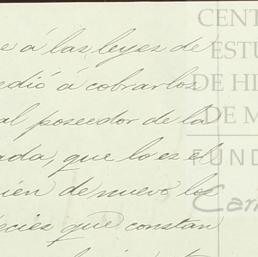 e á las leyes de
edió á cobrarlos
al poseedor de la
ada, que lo es el
uien de nuevo los
ecies que constan
CENT
ESTU
DE HI
DE M
FUND
Car